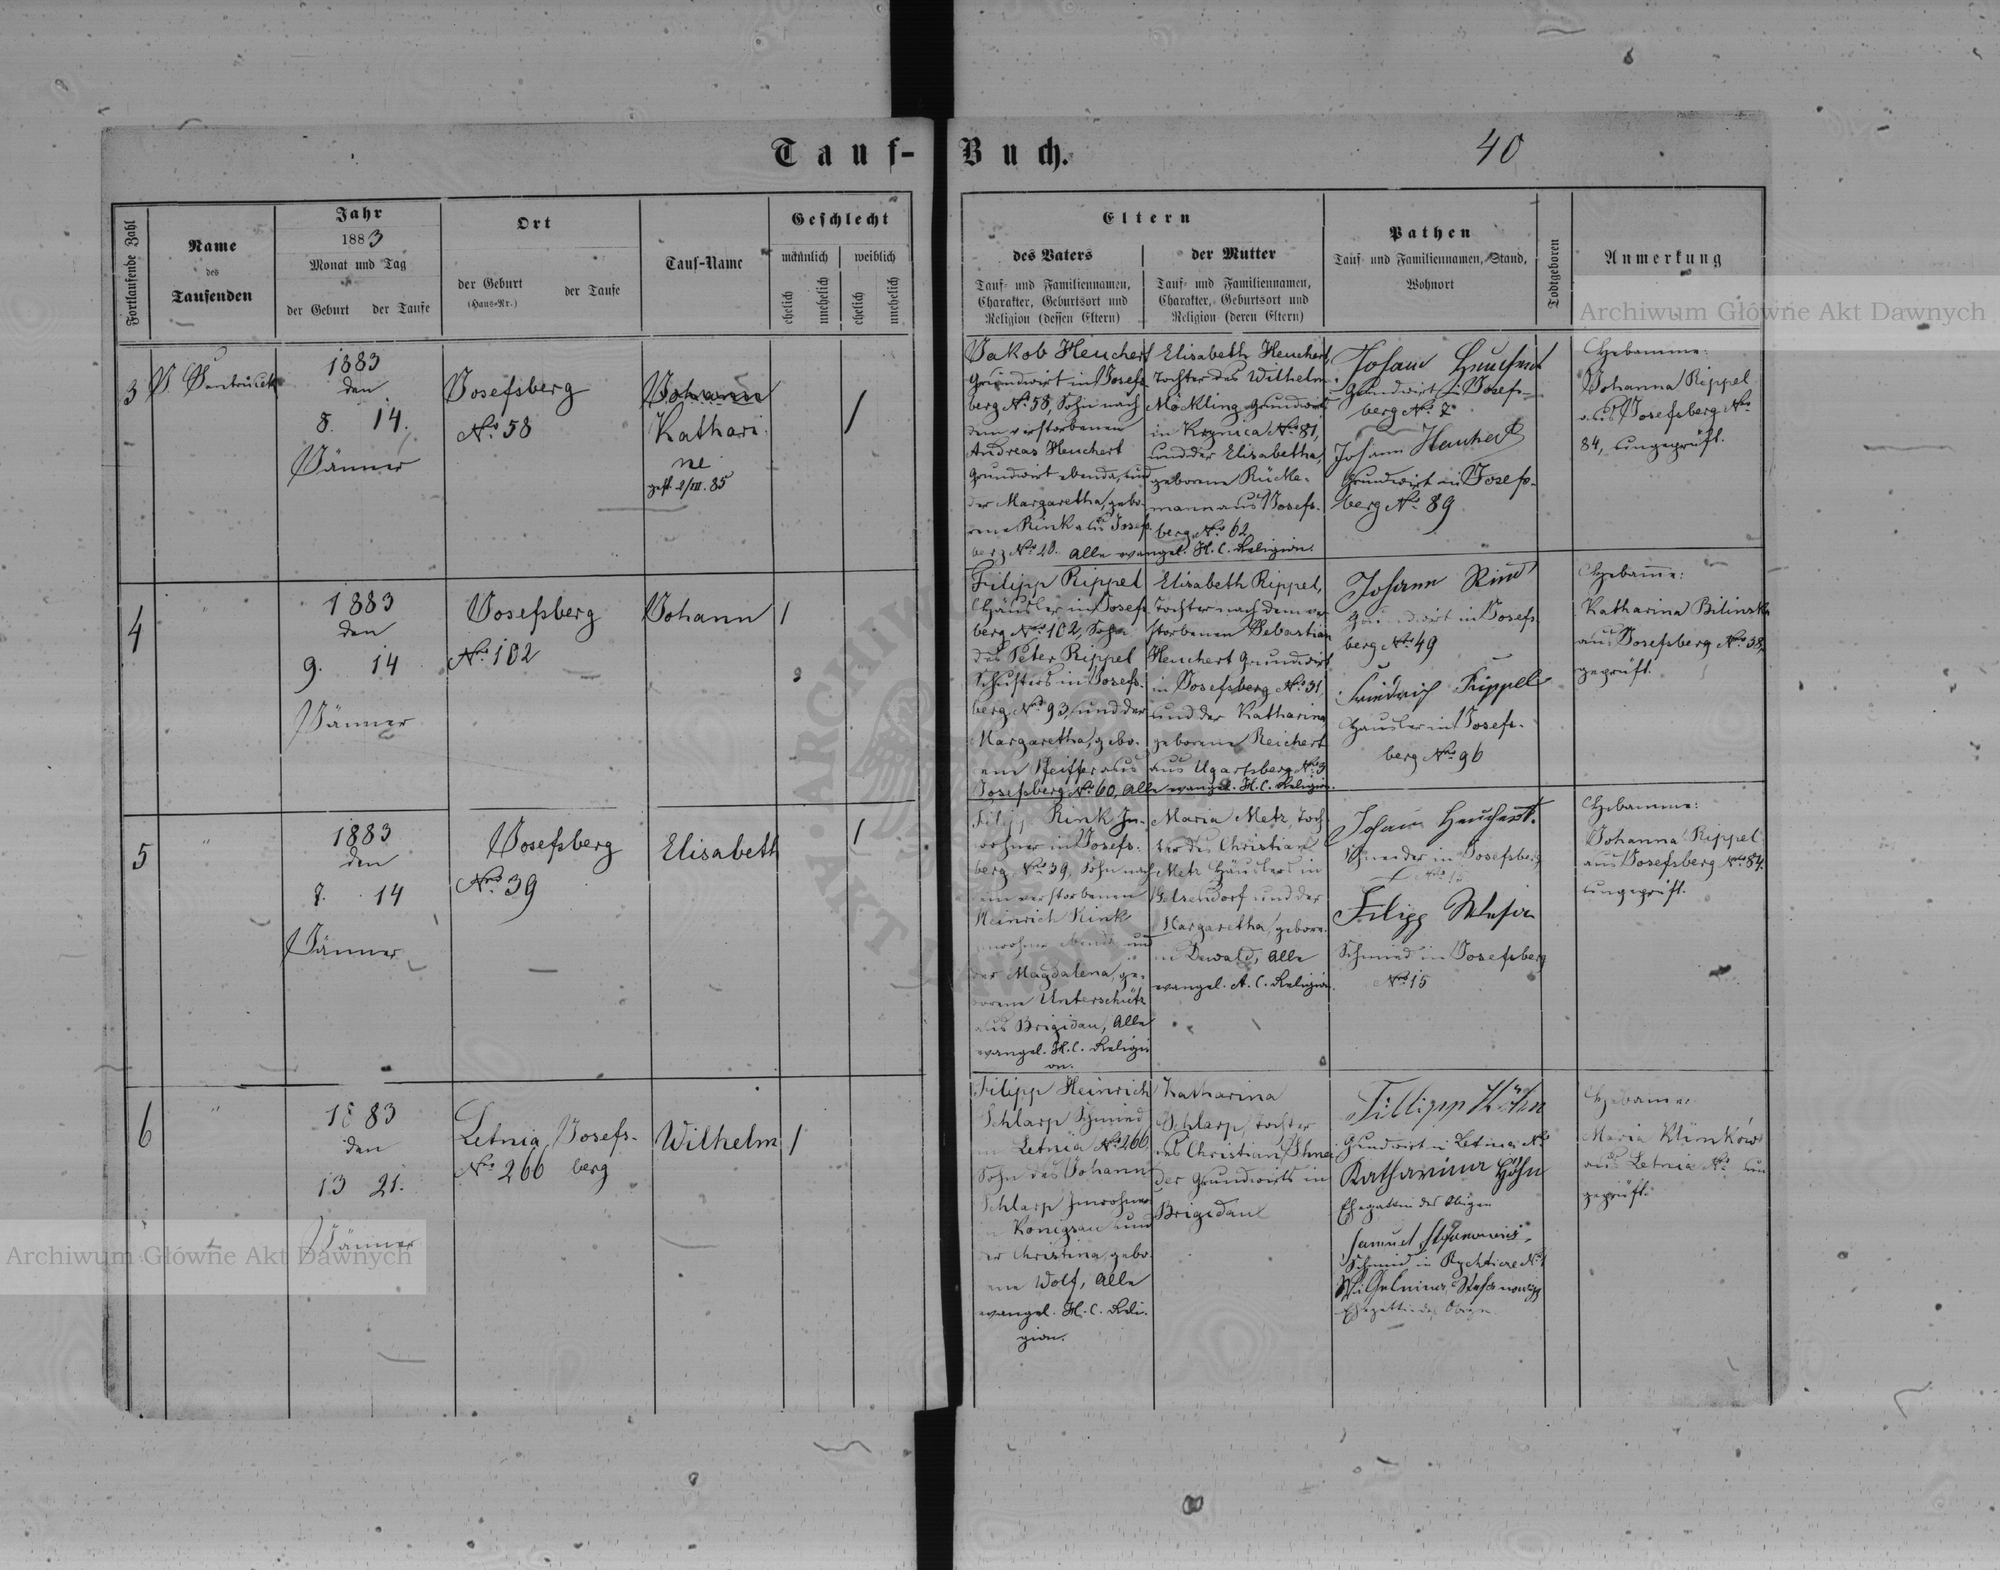 Tauf-Buch.
40
Fortlaufende Zahl
Name
des
Taufenden
Jahr
1883
Monat und Tag
der Geburt der Taufe
Ort
der Geburt
(Haus-Nr.)
der Taufe
Tauf-Name
Geschlecht
männlich weiblich
ehelich
unehelich
ehelich
unehelich
Eltern
des Vaters
Tauf- und Familiennamen,
Charakter, Geburtsort und
Religion (dessen Eltern)
der Mutter
Tauf- und Familiennamen,
Charakter, Geburtsort und
Religion (deren Eltern)
Pathen
Tauf- und Familiennamen, Stand,
Wohnort
Todtgeboren
Anmerkung
3
1883
den
8. 14.
Jänner
Josefsberg
No 58
Johann
Kathari
ne
1
Jakob Heuchert
Grundwirt in Josefs-
berg No 58, Sohn nach
dem verstorbenen
Andreas Heuchert
Grundwirt ebenda, und
der Margaretha, gebo-
rene Rink aus Josefs-
berg No 20. Alle evangel. H. C. Religion.
Elisabeth Heuchert,
Tochter des Wilhelm
Möckling Grundwirt
in Krynica No 81,
und der Elisabetha,
geborene Rücke-
mann aus Josefs-
berg No 62
Johann Heuchert
Grundwirt in Josefs-
berg No
Johann Heuchert
Grundwirt in Josefs-
berg No 89
Hebamme:
Johanna Rippel
aus Josefsberg No
84, ungeprüft.
4
"
1883
den
9. 14
Jänner
Josefsberg
No 102
Johann
1
Filipp Rippel
Häusler in Josefs-
berg No 102, Sohn
des Peter Rippel
Schusters in Josefs-
berg No 93, und der
Margaretha, gebo-
aus
Josefsberg No 60, Alle evangel. H. C. Religion.
Elisabeth Rippel,
Tochter nach dem ver-
storbenen Sebastian
Heuchert Grundwirt
in Josefsberg No 31
und der Katharina
geborene Reichert
aus Ugartsberg No 3
Johann Rink
Grundwirt in Josefs-
berg No 49
Friedrich Rippel
Häusler in Josefs-
berg No 96
Hebamme:
Katharina Bilinska
aus Josefsberg No 38,
geprüft.
5
"
1883
den
8. 14
Jänner
Josefsberg
No 39
Elisabeth
1
Rink In-
wohner in Josefs-
berg No 39, Sohn nach
dem verstorbenen
Heinrich Rink
Inwohner ebenda und
der Magdalena, ge-
borene Unterschütz
aus Brigidau, Alle
evangel. H. C. Religi
on.
Maria Metz, Toch-
ter des Christian
Metz Häuslers in
Gelsendorf und der
Margaretha, gebore-
ne Dewald, Alle
evangel. A. C. Religion.
Johann Heuchert.
Schneider in Josefsberg
Filipp
Schmied in Josefsberg
No 15
Hebamme:
Johanna Rippel
aus Josefsberg No 84.
ungeprüft.
6
"
1883
den
13 21.
Jänner
Letnia, Josefs-
No 266 berg
Wilhelm
1
Filipp Heinrich
Schlarp Schmied
in Letnia No 266,
Sohn des Johann
Schlarp Inwohner
in Königsau und
der Christina, gebo-
rene Wolf, Alle
evangel. H. C. Reli-
gion.
Katharina
Schlarp, Tochter
des Christian
der Grundwirts in
Brigidau
Fillipp Höhn
Grundwirt in Letnia No
Katharina Höhn
Ehegattin des Obigen
Samuel
Schmied in
Wilhelmina
Ehegattin des Obigen
Hebamme:
Maria Klimków
aus Letnia No un
geprüft.
Archiwum Główne Akt Dawnych
Archiwum Główne Akt Dawnych